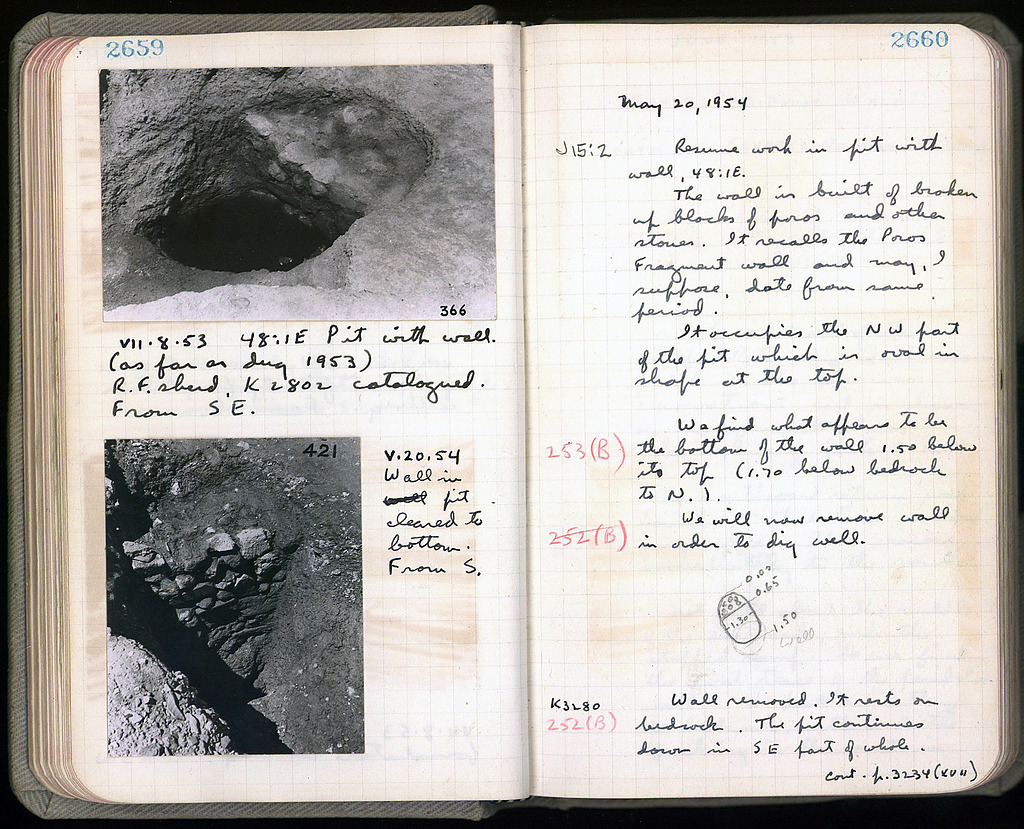 2659
366
VII.8.53 48:1E Pit with wall.
(as far as dug 1953)
R.F. sherd, K 2802 catalogued.
From SE.
421
V.20.54
Wall in
pit
cleared to
bottom.
From S.
2660
May 20, 1954
J15:2 Resume work in pit with
wall, 48:1E.
The wall is built of broken
up blocks of poros and other
stones. It recalls the Poros
Fragment wall and may, I
suppose, date from same
period.
It occupies the NW part
of the pit which is oval in
shape at the top.
We find what appears to be
253(B) the bottom of the wall 1.50 below
its top (1.70 below bedrock
to N.).
We will now remove wall
252(B) in order to dig well.
0.65
1.30
1.50
Well
K3280 Wall removed. It rests on
252(B) bedrock. The pit continues
down in SE part of whole.
cont. p. 3234 (XVII)